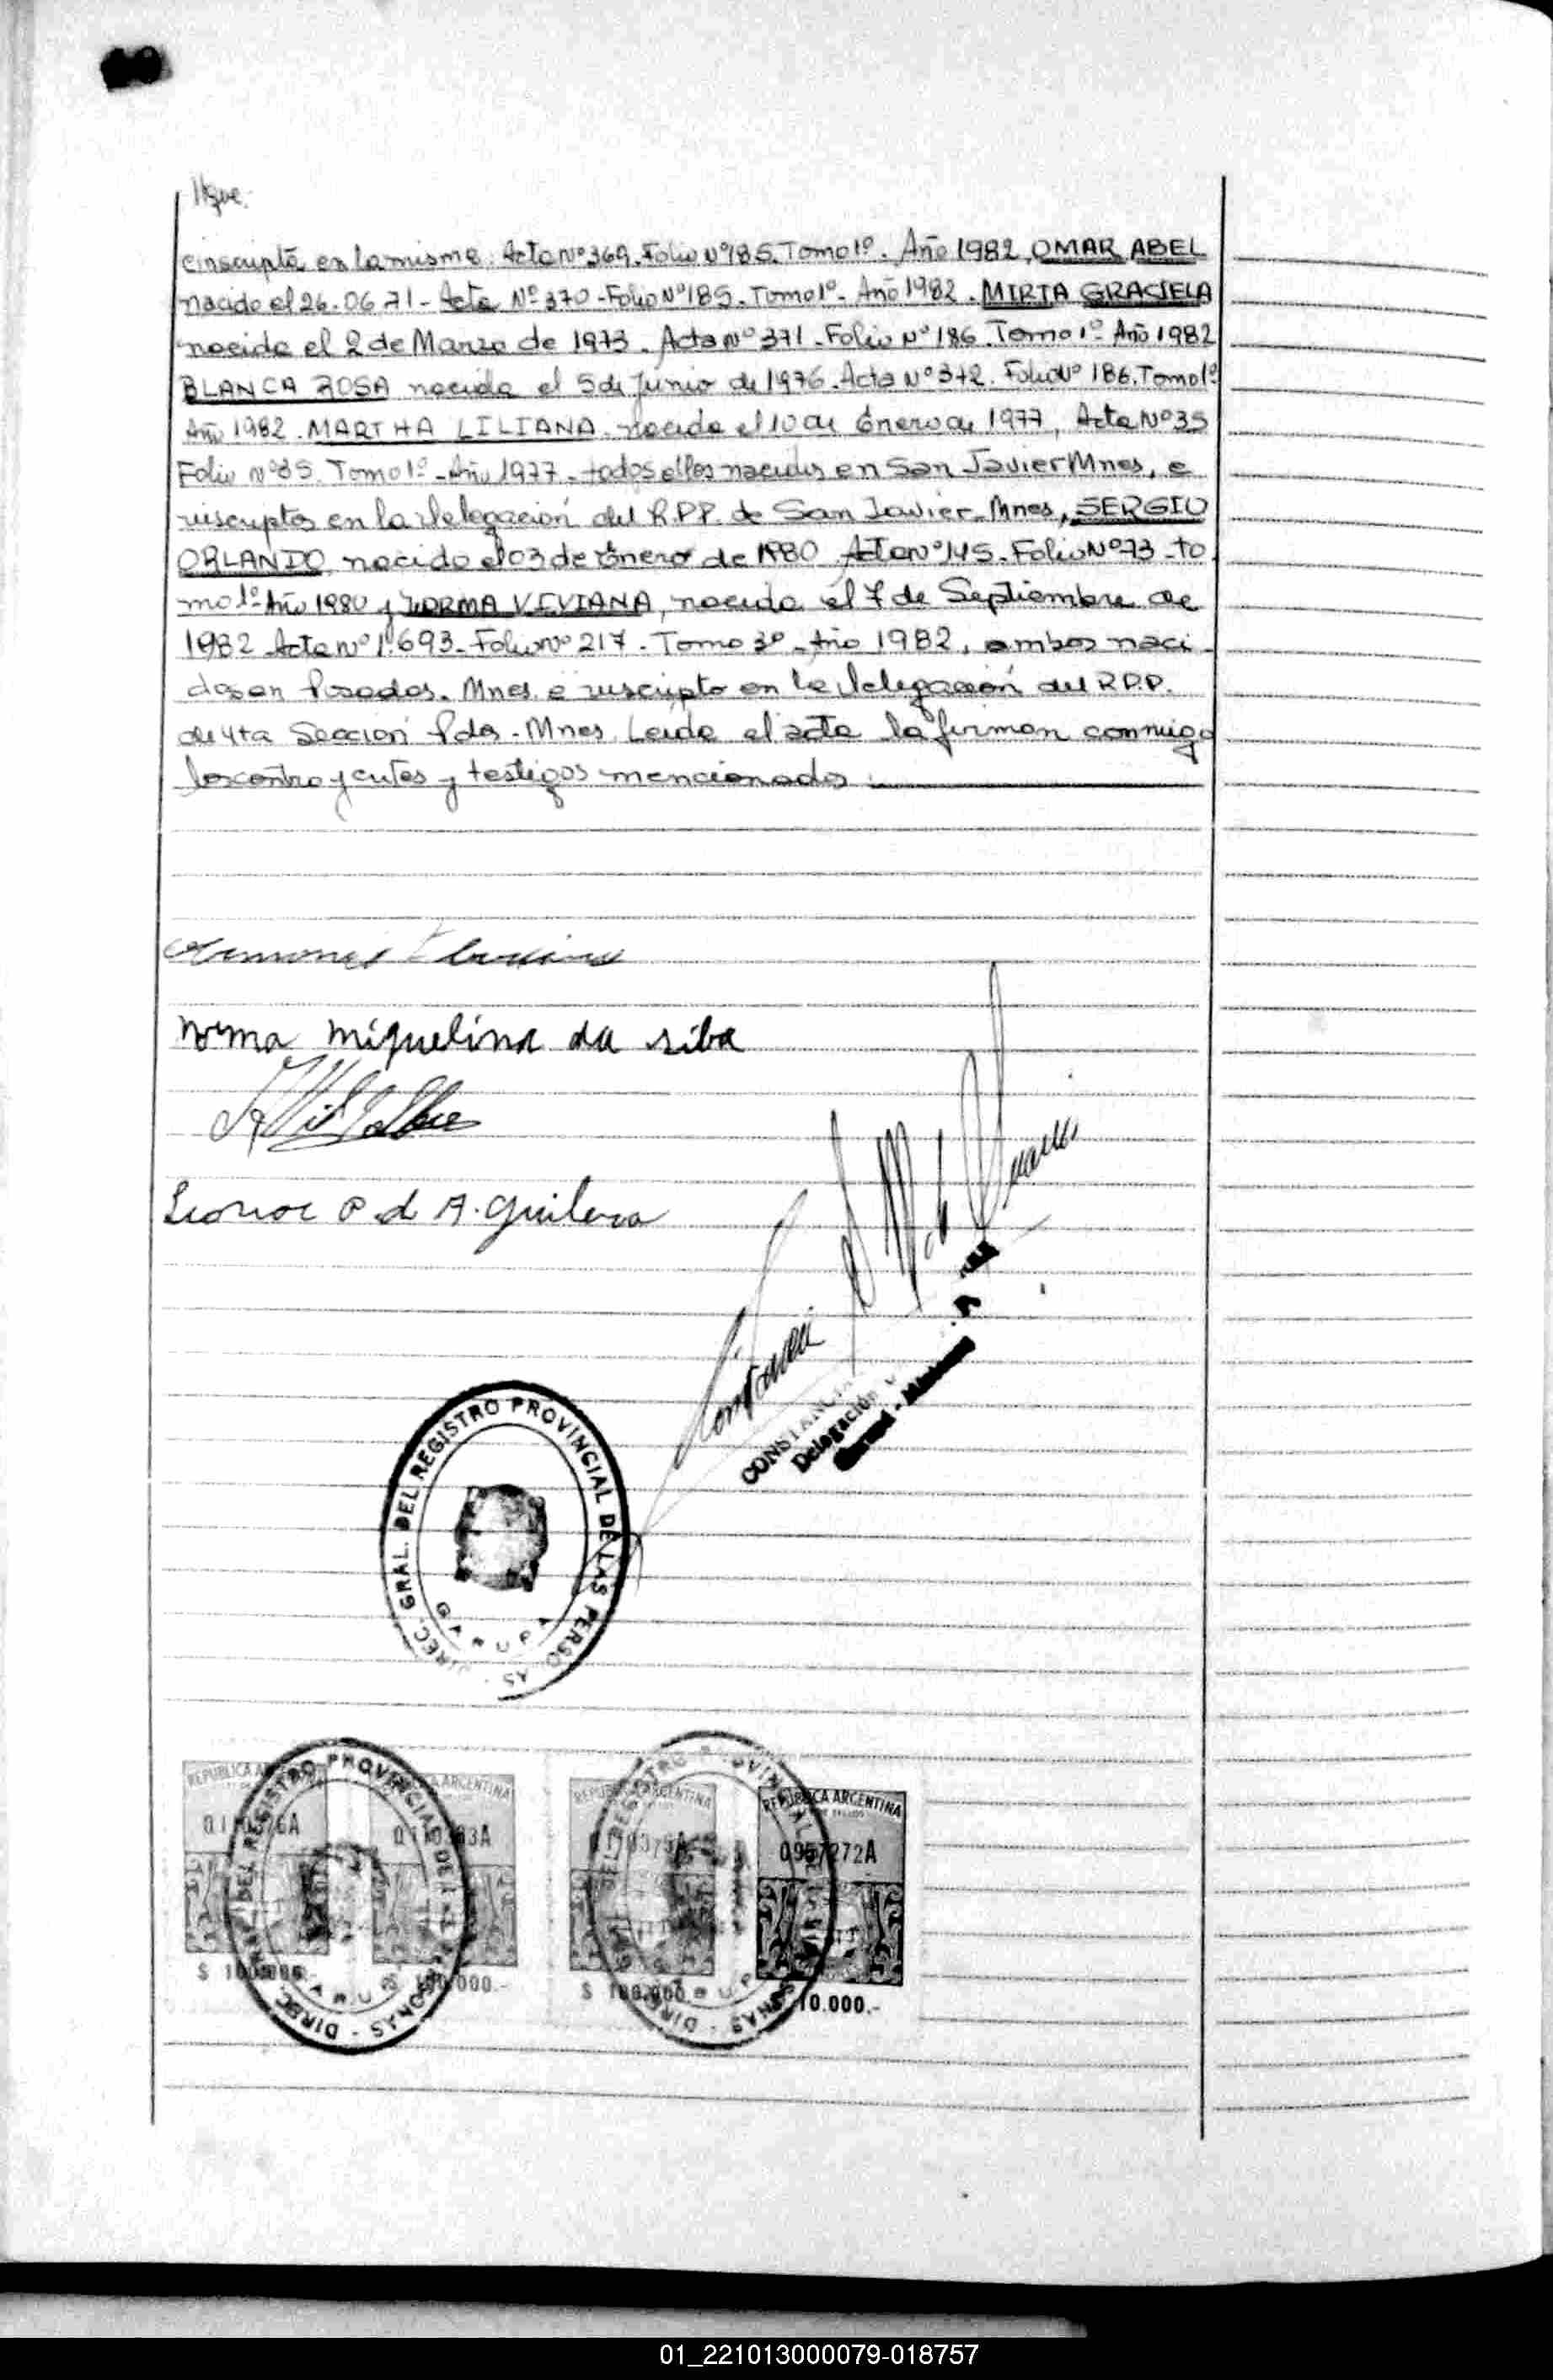 e inscripta en la misma. Acta Nº 369. Folio Nº 185. Tomo 1º. Año 1982, OMAR ABEL
nacido el 26.06.71 - Acta Nº 370 - Folio Nº 185. Tomo 1º - Año 1982. MIRTA GRACIELA
nacida el 2 de Marzo de 1973. Acta Nº 371 - Folio Nº 186. Tomo 1º Año 1982
BLANCA ROSA nacida el 5 de Junio de 1976. Acta Nº 372. Folio Nº 186. Tomo 1º
Año 1982. MARTHA LILIANA nacida el 10 de Enero de 1977, Acta Nº 35
Folio Nº 35. Tomo 1º - Año 1977 - todos ellos nacidos en San Javier Mnes, e
inscriptos en la delegación del R.P.P. de San Javier - Mnes, SERGIO
ORLANDO nacido el 03 de Enero de 1980. Acta nº 145. Folio Nº 73 - to
mo 1º Año 1980 y NORMA VIVIANA, nacida el 7 de Septiembre de
1982 Acta nº 1.693 - Folio nº 217. Tomo 3º - Año 1982, ambos naci
dos en Posadas. Mnes. e inscripto en la delegación del R.P.P.
de 4ta Sección Pdas - Mnes. Leida el acta la firman conmigo
los contrayentes y testigos mencionados.
norma miquelina da silba
Leonor P. d A. guilera
CONSTANCIA
Delegación
DIREC. GRAL. DEL REGISTRO PROVINCIAL DE LAS PERSO AS
GARUPA
REPUBLICA ARGENTINA
REPUBLICA ARGENTINA
0957272A
$ 100.000.-
10.000.-
01_221013000079-018757